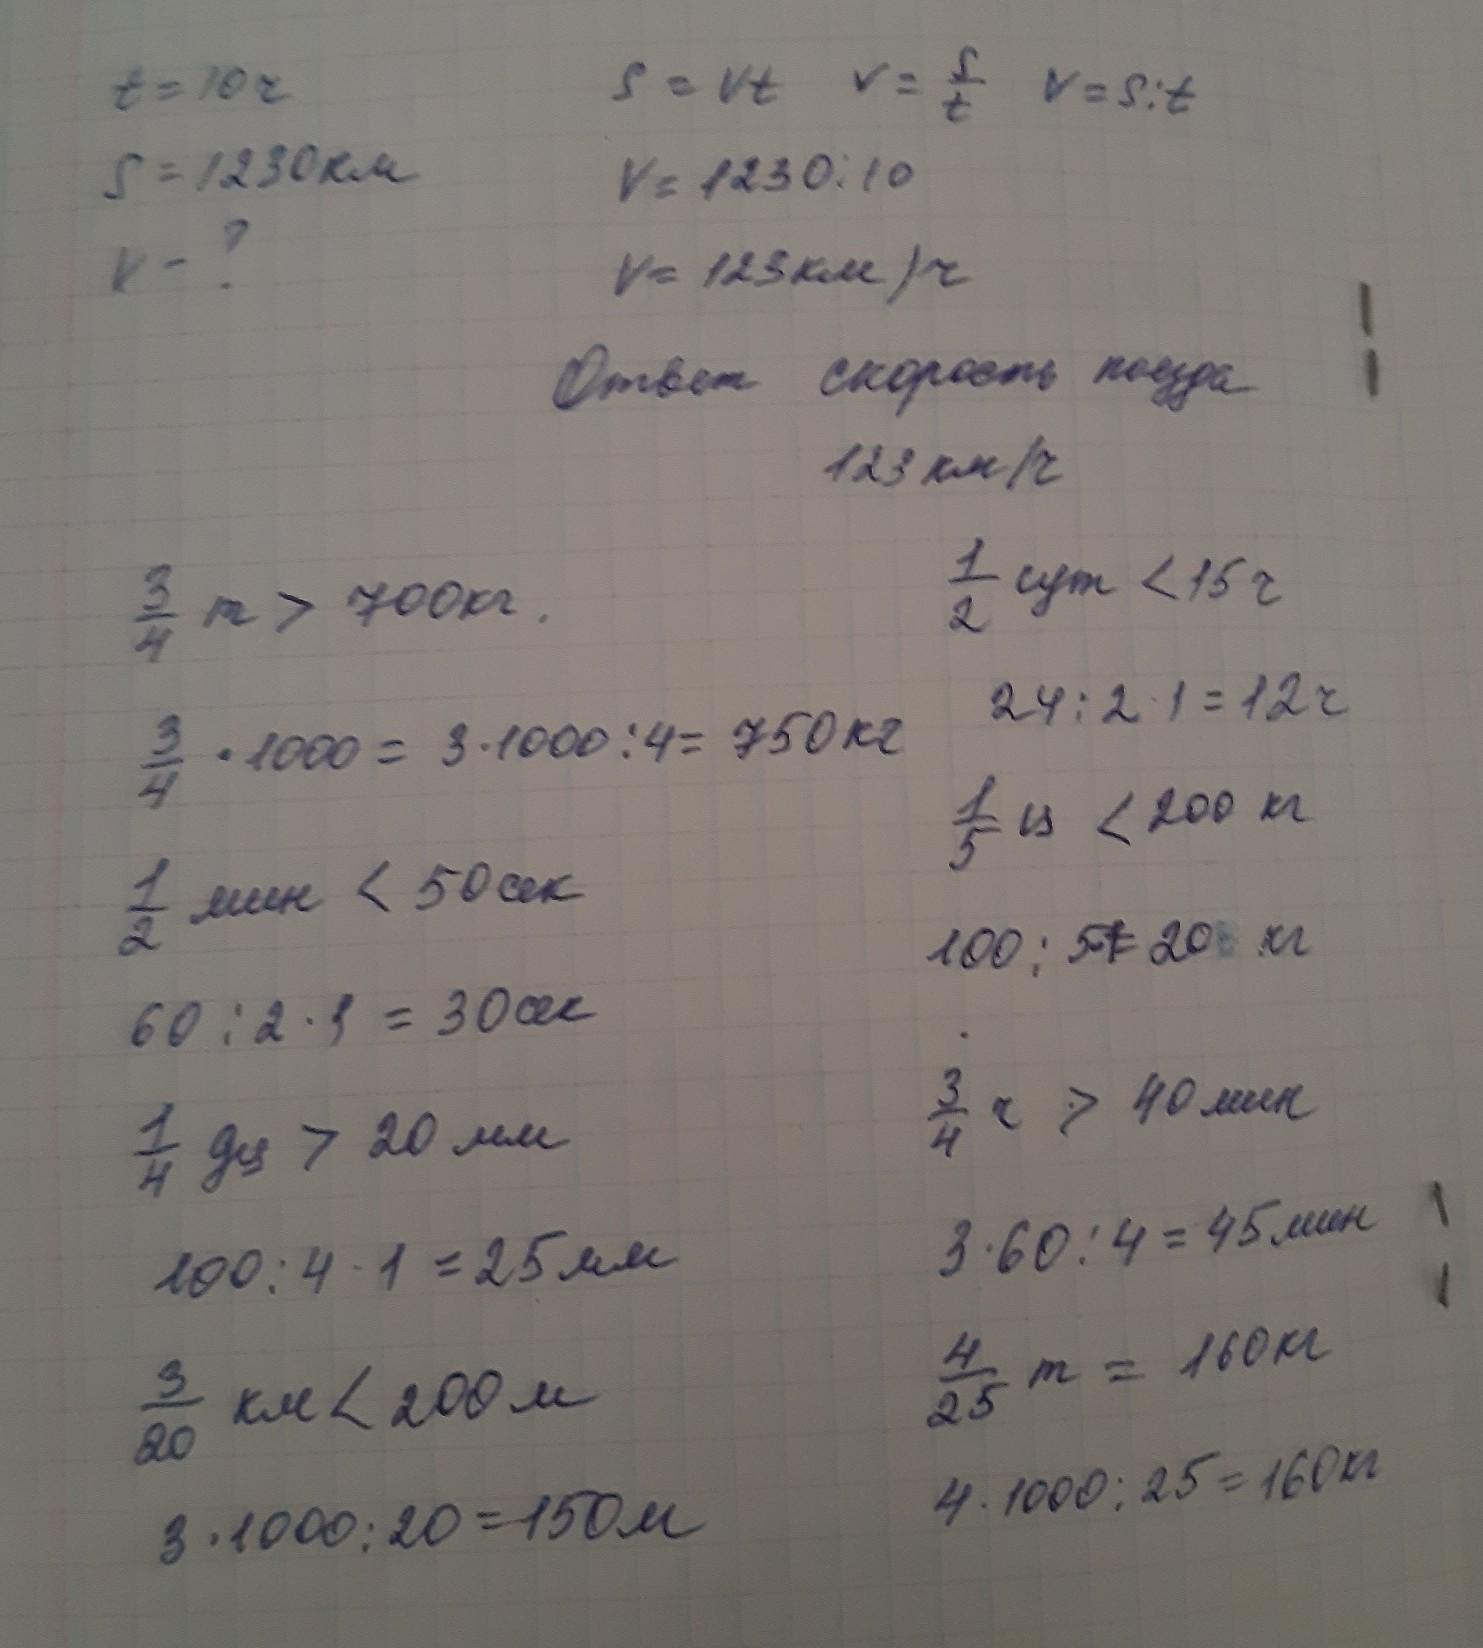 t = 10ч
S = 1230км
V - ?
S = Vt V = S/t V = S:t
V = 1230:10
V = 123км/ч
Ответ скорость поезда
123 км/ч
3/4 т > 700кг.
3/4 · 1000 = 3·1000:4 = 750кг
1/2 мин < 50сек
60:2·1 = 30сек
1/4 дц > 20 мм
100:4·1 = 25мм
3/20 км < 200м
3·1000:20 = 150м
1/2 сут < 15ч
24:2·1 = 12ч
1/5 ц < 200 кг
100:5 = 20 кг
3/4 ч > 40мин
3·60:4 = 45мин
4/25 т = 160кг
4·1000:25 = 160кг